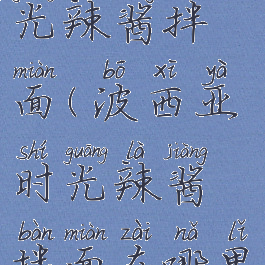 光辣酱拌
miàn bō xī yà
面（波西亚
shí guāng là jiàng
时光辣酱
bàn miàn zài nǎ lǐ
拌面在哪里